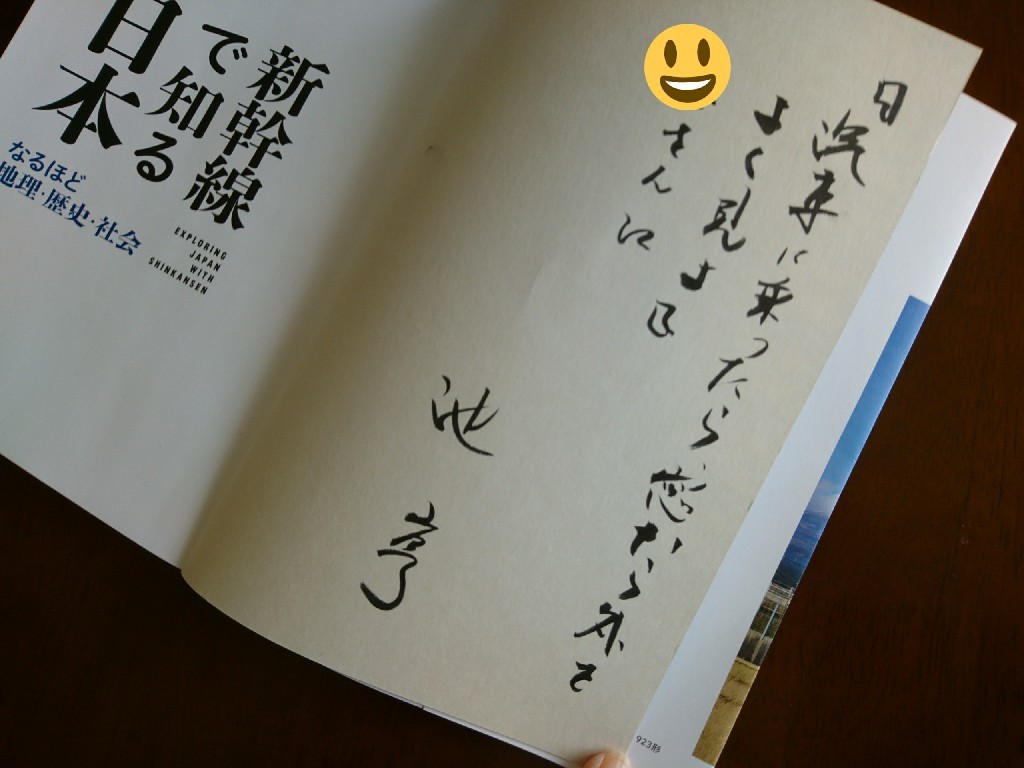 汽車に乗ったら窓から外を
よく見よ
さん江
池享
新幹線
で知る
日本
なるほど
地理・歴史・社会
EXPLORING
JAPAN
WITH
SHINKANSEN
923形